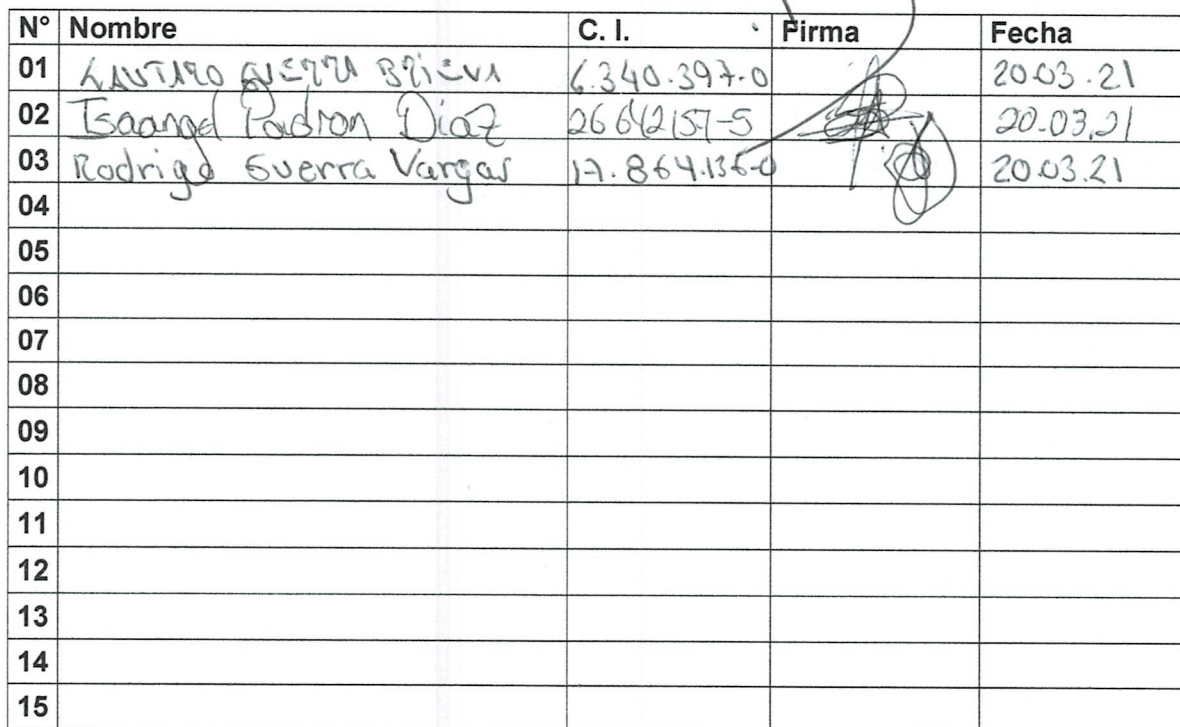 N° Nombre C. I. Firma Fecha
01 LAUTARO GUERRA BRIEVA 6.340.397-0 20.03.21
02 Isaangel Padron Diaz 26642157-5 20.03.21
03 Rodrigo Guerra Vargas 17.864.136-0 20.03.21
04
05
06
07
08
09
10
11
12
13
14
15